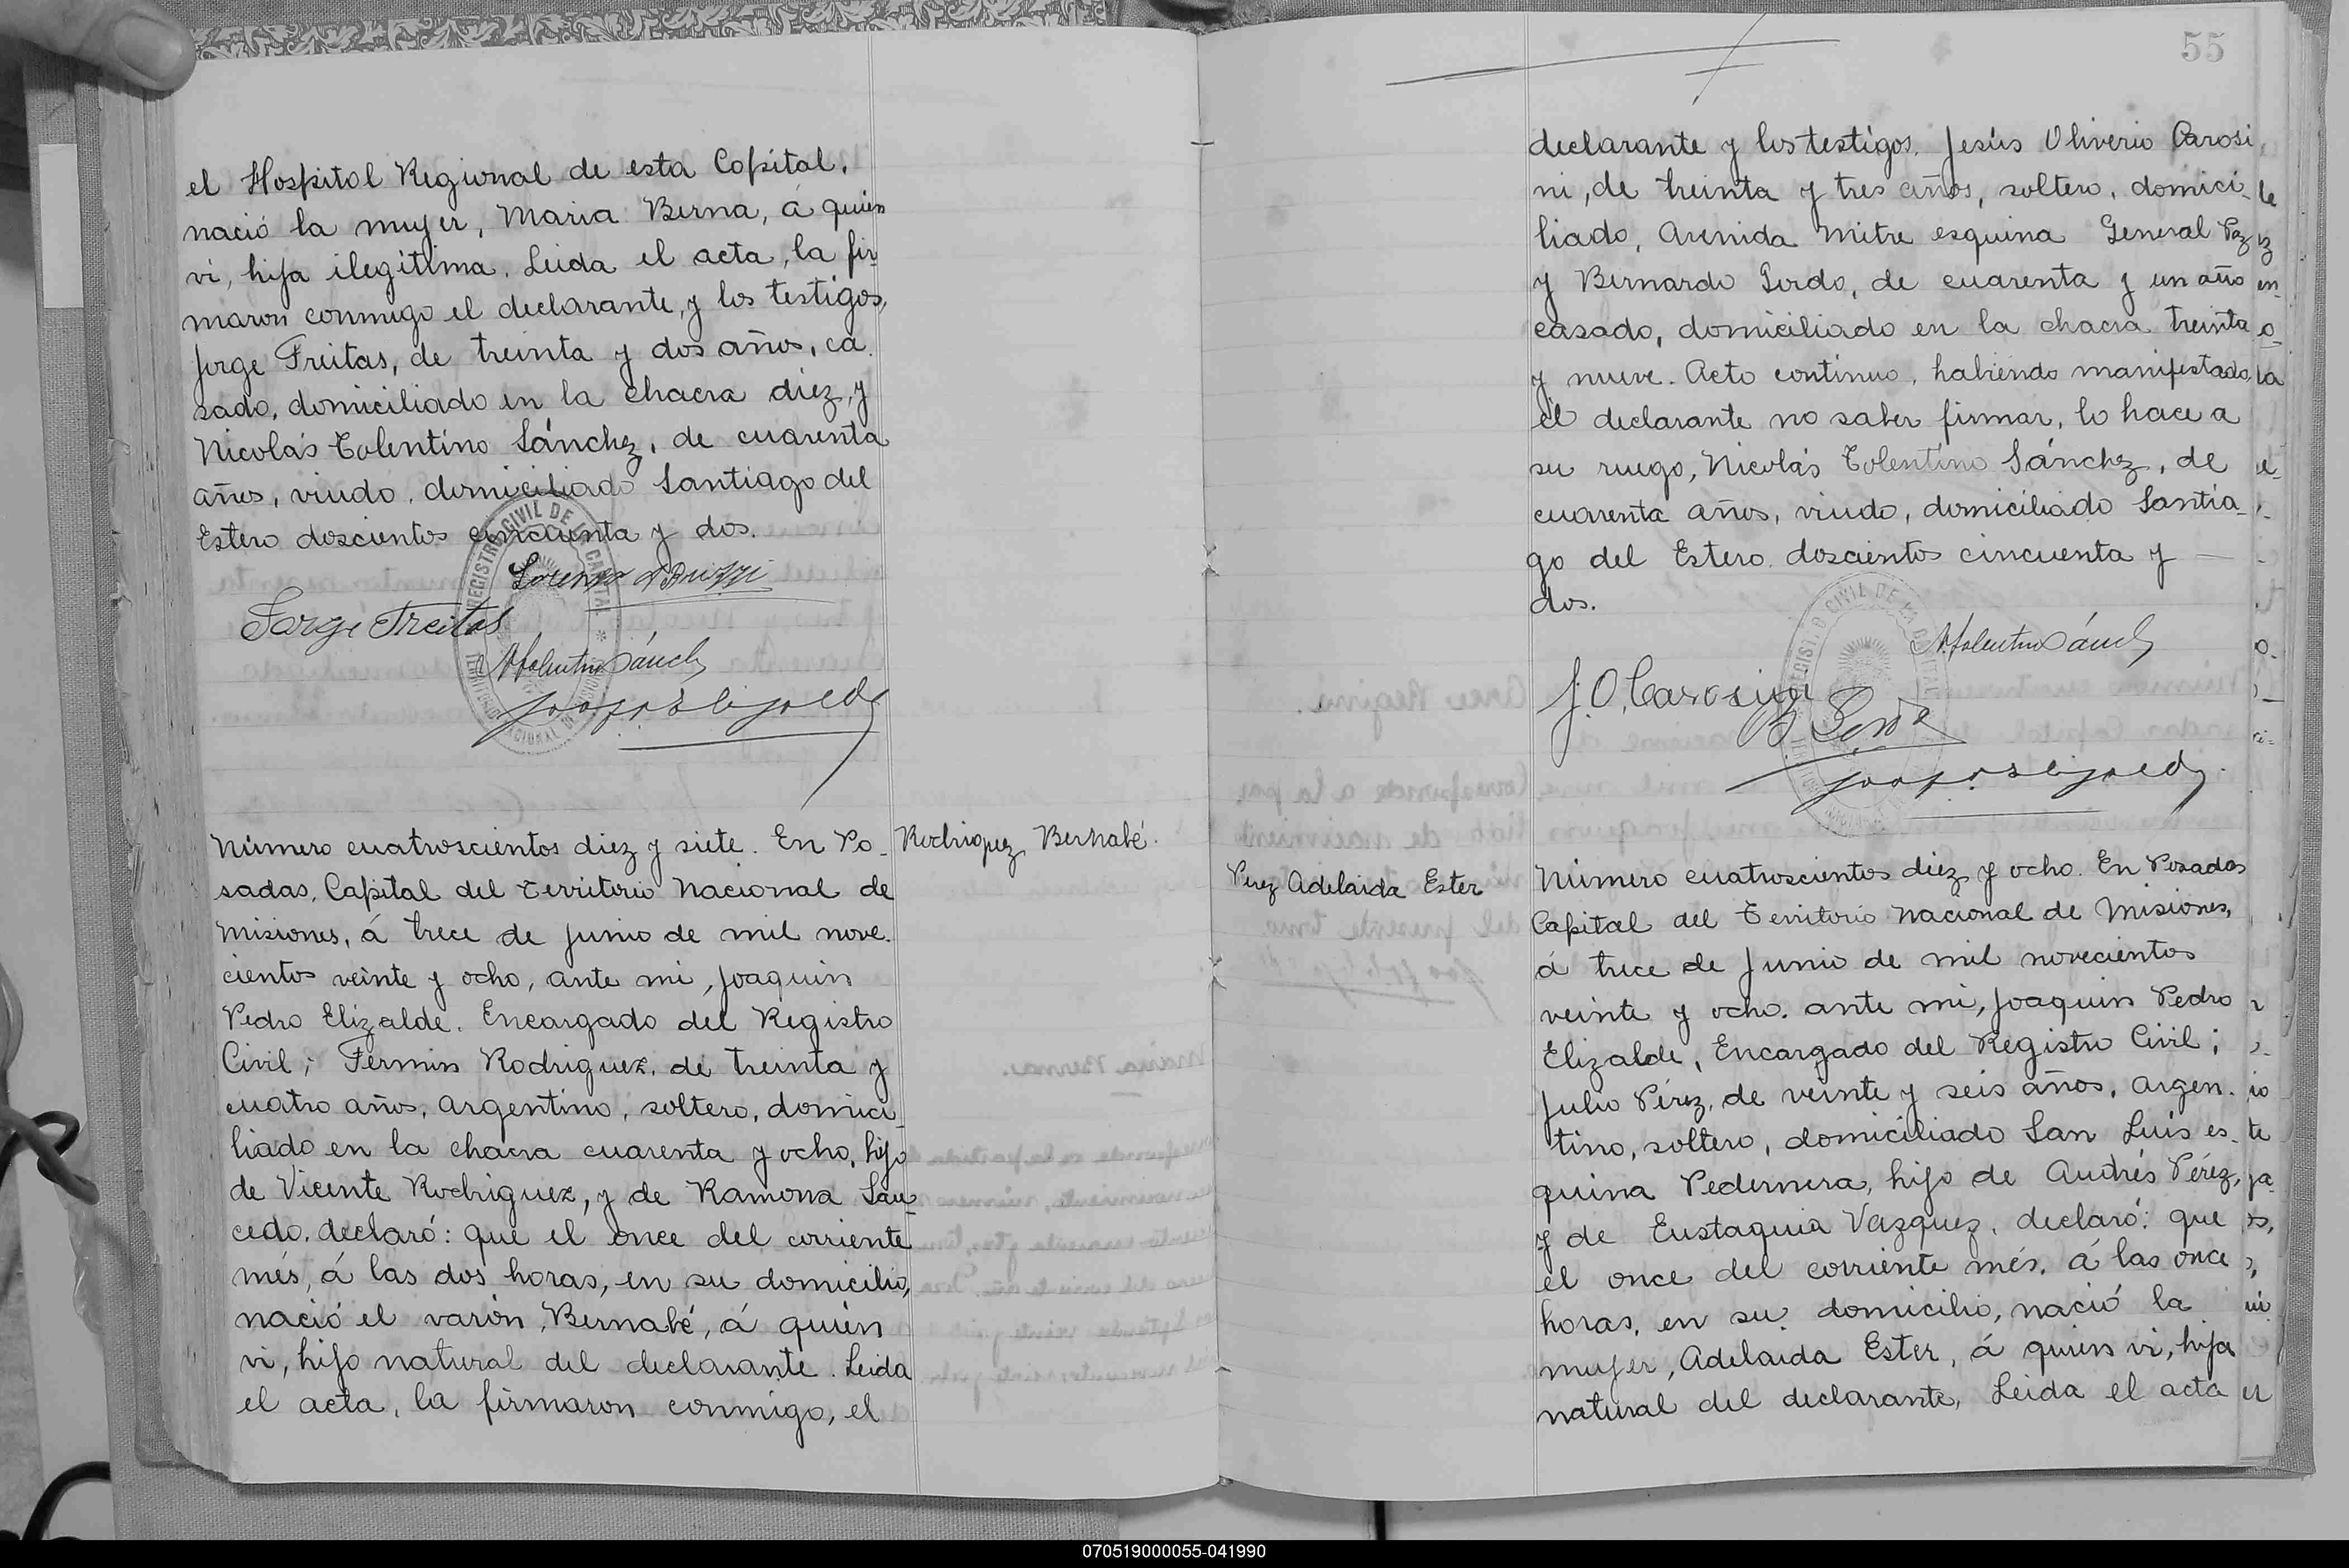 el Hospital Regional de esta Capital,
nació la mujer, Maria Berna, á quien
vi, hija ilegítima. Leida el acta, la fir-
maron conmigo el declarante, y los testigos,
Jorge Freitas, de treinta y dos años, ca-
sado, domiciliado en la chacra diez, y
Nicolás Tolentino Sánchez, de cuarenta
años, viudo, domiciliado Santiago del
Estero doscientos cincuenta y dos.
REGISTRO CIVIL DE LA CAPITAL
Jorge Freitas
Número cuatroscientos diez y siete. En Po-
sadas, Capital del Territorio Nacional de
Misiones, á trece de Junio de mil nove-
cientos veinte y ocho, ante mi, Joaquin
Pedro Elizalde, Encargado del Registro
Civil; Fermin Rodriguez, de treinta y
cuatro años, argentino, soltero, domici-
liado en la chacra cuarenta y ocho, hijo
de Vicente Rodriguez, y de Ramona Sau-
cedo, declaró: que el once del corriente
més, á las dos horas, en su domicilio,
nació el varón, Bernabé, á quien
vi, hijo natural del declarante. Leida
el acta, la firmaron conmigo, el
Rodriguez Bernabé.
55
declarante y los testigos, Jesús Oliverio Carosi-
ni, de treinta y tres años, soltero, domici-
liado, Avenida Mitre esquina General Paz
y Bernardo Gordo, de cuarenta y un año
casado, domiciliado en la chacra treinta
y nueve. Acto continuo, habiendo manifestado
el declarante no saber firmar, lo hace a
su ruego, Nicolás Tolentino Sánchez, de
cuarenta años, viudo, domiciliado Santia-
go del Estero doscientos cincuenta y
dos.
J. O. Carosini
Perez Adelaida Ester
Número cuatroscientos diez y ocho. En Posadas
Capital del Territorio Nacional de Misiones,
á trece de Junio de mil novecientos
veinte y ocho, ante mi, Joaquin Pedro
Elizalde, Encargado del Registro Civil;
Julio Pérez, de veinte y seis años, argen-
tino, soltero, domiciliado San Luis es-
quina Pedernera, hijo de Andrés Pérez,
y de Eustaquia Vazquez, declaró: que
el once del corriente més, á las once
horas, en su domicilio, nació la
mujer, Adelaida Ester, á quien vi, hija
natural del declarante, Leida el acta
070519000055-041990